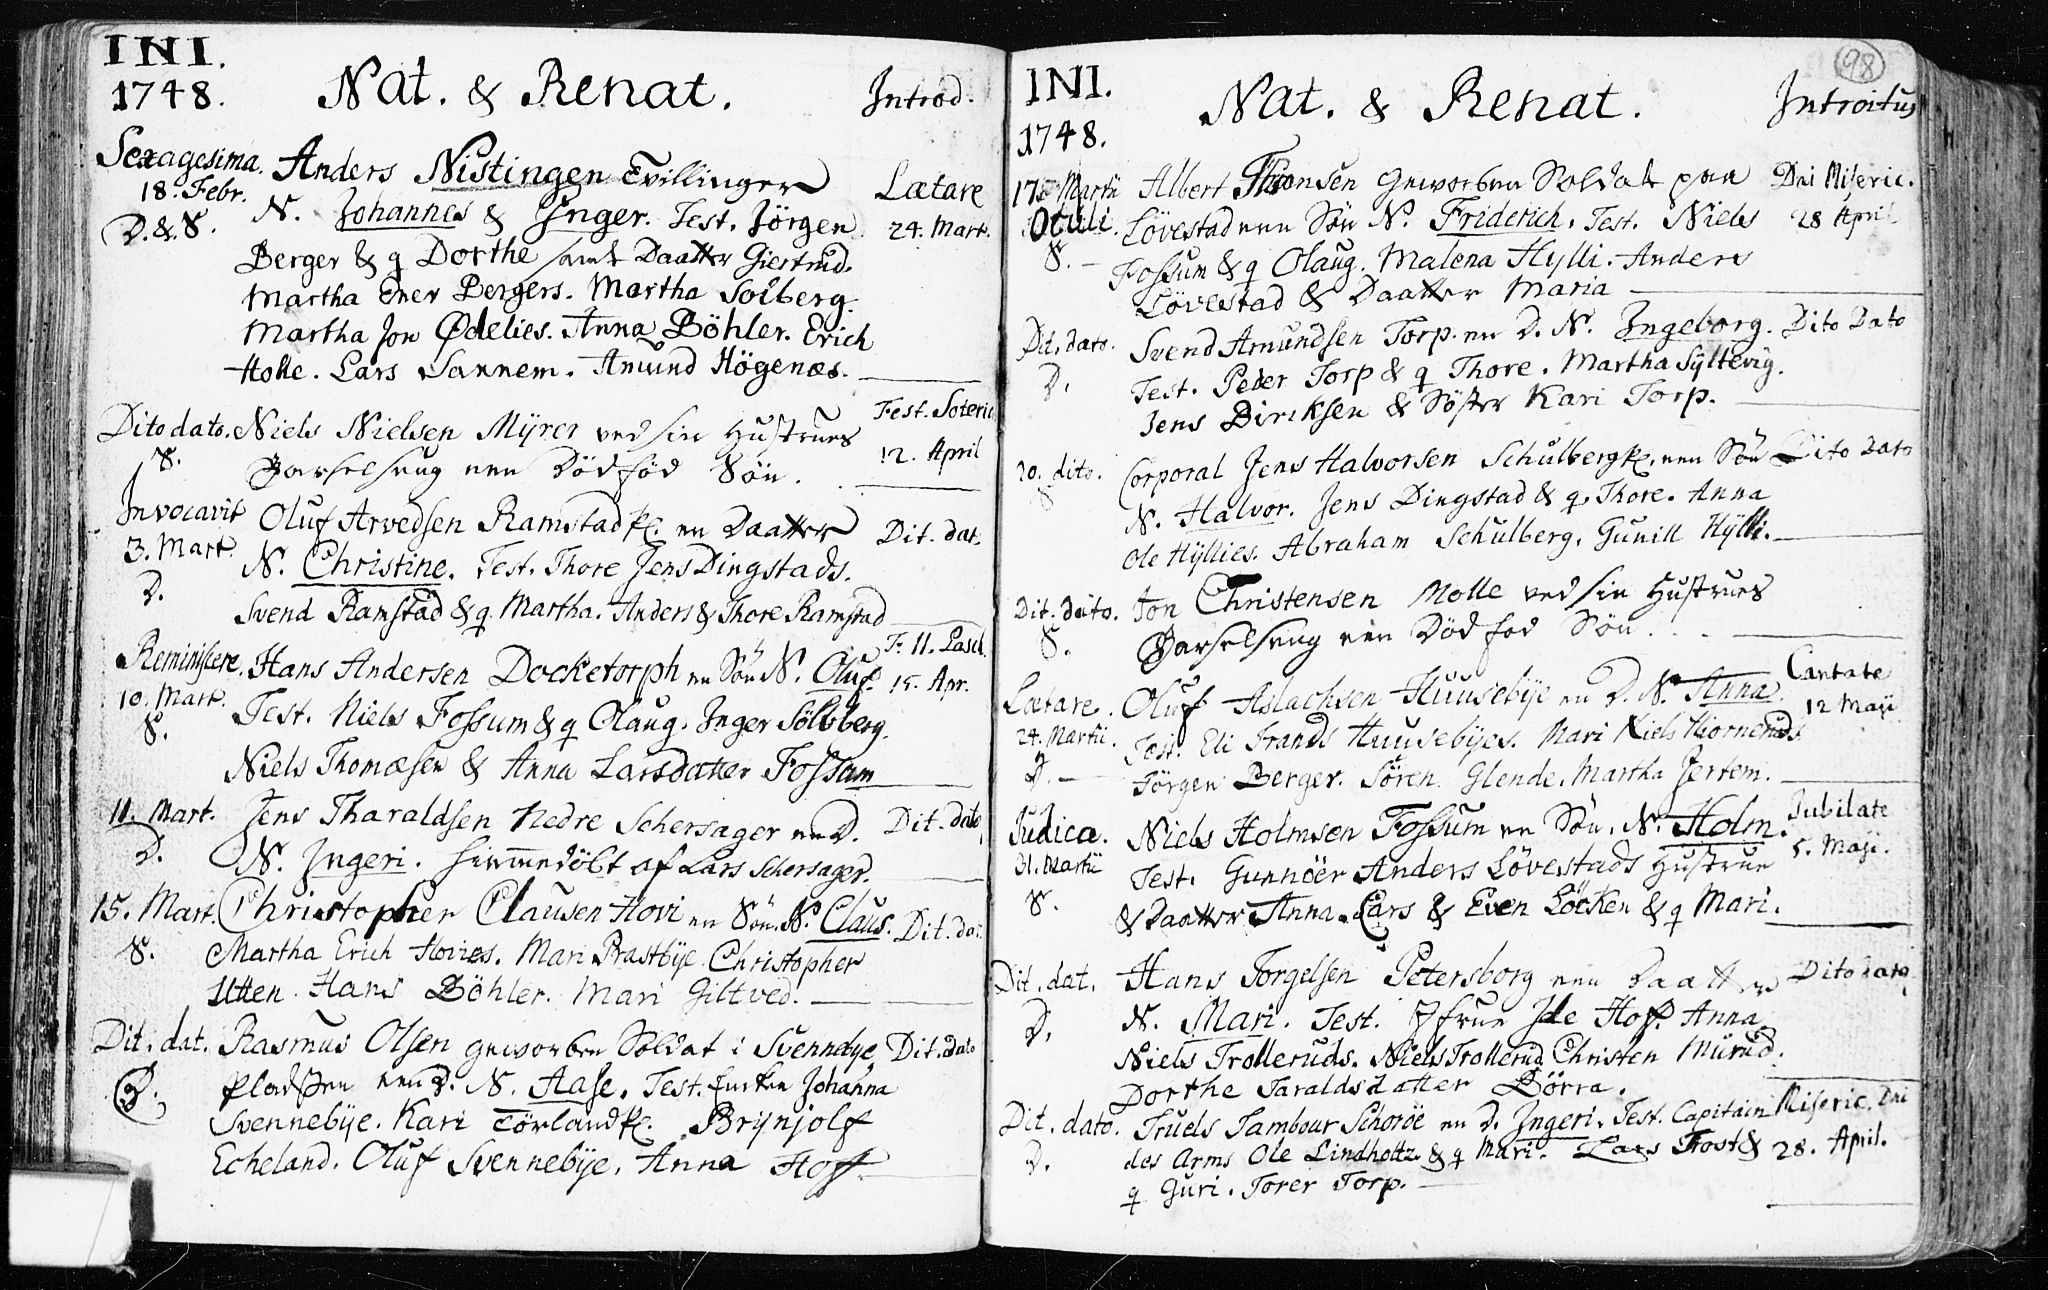 INI.
1748. Nat. & Renat. Introd.
Sexagesima. Anders Nistingen Tvillinger Lætare
18. Febr. N. Johannes & Inger. Test. Jörgen 24. Mart.
D. & S. Berger & q Dorthe samt Daatter Giertrud.
Martha Ener Bergers. Martha Solberg.
Martha Jon Ødelies. Anna Böhler. Erich
Holle. Lars Sannem. Amund Högenæs.
Dito dato. Niels Nielsen Myrer ved sin Hustrues Fest. Soteric
S. Barselseng een Dödfød Sön. 12. April
Invocavit Oluf Arvedsen Ramstad en Daatter Dit. dat.
3. Mart. N. Christine. Test. Thore Jens Dingstads.
D. Svend Ramstad & q Martha. Anders & Thore Ramstad
Reminiscere. Hans Andersen Docketorph en Sön N. Oluf. F. 11. Pasch.
10. Mart. Test. Niels Fossum & q Olaug. Inger Sölvberg. 15. Apr.
S. Niels Thomæsen & Anna Larsdatter Fossum
11. Mart. Jens Tharaldsen Nedre Schersager en D. Dit. dato
D. N. Ingeri. hiemmedöbt af Lars Schersager.
15. Mart. Christopher Clausen Hovi en Sön. N. Claus. Dit. dat.
S. Martha Erich Hovies. Mari Prastbye Christopher
Utten. Hans Böhler. Mari Giltved.
Dit. dat. Rasmus Olsen geworben Soldat i Svennebye Dit. dato
D. pladssen een D. N. Aase. Test. Enken Johanna
Svennebÿe. Kari Törland. Brynjolf
Echeland. Oluf Svennebÿe. Anna Hoff.
98
INI. Nat. & Renat. Introitus
1748.
17. Martii Albert Thonsen geworben Soldat paa Dni Miseric.
Oculi. Lövestad een Sön N. Friderich. Test. Niels 28 April
S. Fossum & q Olaug. Malena Hylli. Anders
Lövestad & Daatter Maria
Dit. dato. Svend Amundsen Torp. en D. N. Ingeborg. Dito Dato
D. Test. Peder Torp & q Thore. Martha Syltevig.
Jens Dircksen & Söster Kari Torp.
20. dito. Corporal Jens Halvorsen Schulberg, een Sön Dito Dato
S N. Halvor. Jens Dingstad & q. Thore. Anna
Ole Hÿllies. Abraham Schulberg. Gunill Hÿlli.
Dit. dato. Jon Christensen Molle ved sin Hustrues
S. Barselseng een Död fød Sön.
Lætare. Oluf Aslachsen Huusebÿe en D. N. Anna. Cantate
24. Martii. Test. Eli Trands Huusebÿes. Mari Niels Hiorneruds. 12 Maji
D. Jörgen Berger. Sören Glende. Martha Jertem.
Judica. Niels Holmsen Fossum en Sön. N. Holm. Jubilate
31. Martii Test. Gunnöer Anders Lövestads Hustrue 5. Maji.
S. & Daatter Anna. Lars & Even Löcken & q Mari.
Dit. dat. Hans Torgelsen Petersborg een Daatter Dito dato
D. N. Mari. Test. Jfrue Ide Hof. Anna
Niels Trolleruds. Niels Trollerud Christen Murud.
Dorthe Taraldsdatter Börra.
Dit. dato. Truels Tambour Schoröe en D. Ingeri. Test. Capitain Miseric. Dni
D. des Arms Ole Lindholtz & q Mari. Lars Trost & 28. April.
q Guri. Torer Torp.